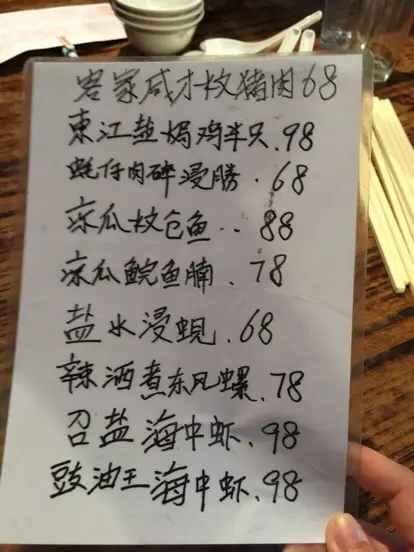 客家咸才炆猪肉68
東江盐焗鸡半只.98
蚝仔肉碎浸勝.68
凉瓜炆仓鱼..88
凉瓜鲩鱼腩.78
盐水浸蚬.68
辣酒煮东风螺.78
召盐海中虾.98
豉油王海中虾.98